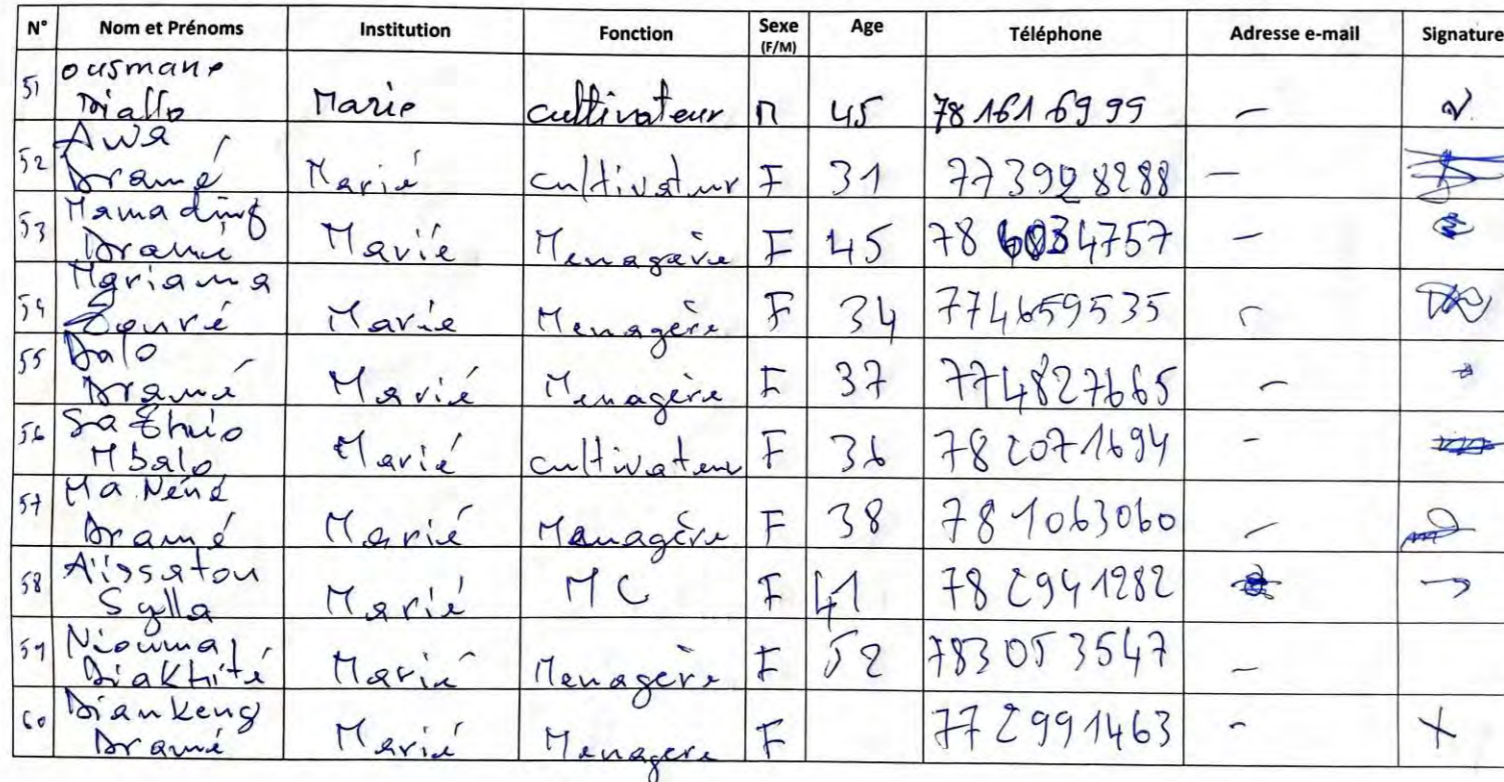 N° Nom et Prénoms Institution Fonction Sexe (F/M) Age Téléphone Adresse e-mail Signature
51 ousmane Diallo Marie cultivateur M 45 78 161 69 99 –
52 Awa Dramé Marié cultivateur F 31 77 390 8288 –
53 Dramé Marié Menagère F 45 78 6034757 –
54 Mariama Marié Menagère F 34 774659535
55 Dalo Dramé Marié Menagère F 37 774827665 –
56 Mbalo Marié cultivateur F 36 78 2071694 –
57 Ma Néné Dramé Marié Menagère F 38 78 1063060 –
58 Aïssatou Sylla Marié MC F 41 78 2941282
59 Niouma Diakhité Marié Menagère F 52 783053547 –
60 Diankeng Dramé Marié Menagere F 77 2991463 –